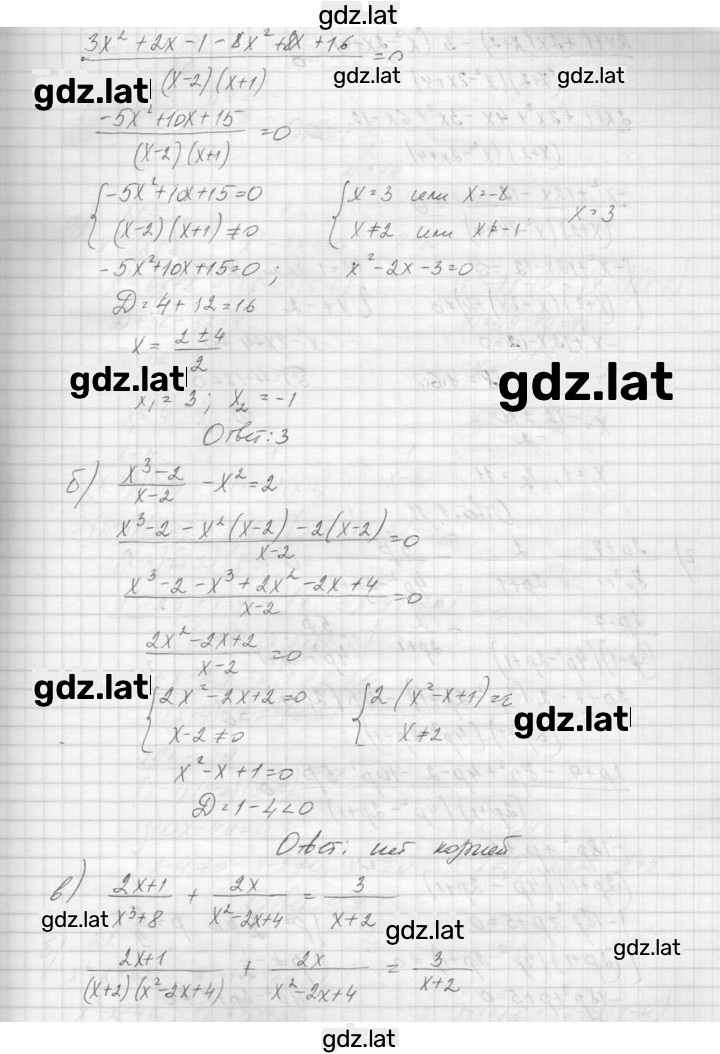 gdz.lat
3x² + 2x - 1 - 8x² + 8x + 16 / (x-2)(x+1) = 0
gdz.lat gdz.lat gdz.lat
-5x² + 10x + 15 / (x-2)(x+1) = 0
{ -5x² + 10x + 15 = 0 { x = 3 или x = -1 x = 3
(x-2)(x+1) ≠ 0 x ≠ 2 или x ≠ -1
-5x² + 10x + 15 = 0 ; x² - 2x - 3 = 0
D = 4 + 12 = 16
x = 2 ± 4 / 2
gdz.lat gdz.lat
x₁ = 3 ; x₂ = -1
Ответ: 3
б) x³ - 2 / x - 2 - x² = 2
x³ - 2 - x²(x-2) - 2(x-2) / x-2 = 0
x³ - 2 - x³ + 2x² - 2x + 4 / x-2 = 0
2x² - 2x + 2 / x - 2 = 0
gdz.lat gdz.lat
{ 2x² - 2x + 2 = 0 { 2(x² - x + 1) =
x - 2 ≠ 0 x ≠ 2
x² - x + 1 = 0
D = 1 - 4 < 0
Ответ: нет корней
в) 2x+1 / x³+8 + 2x / x²-2x+4 = 3 / x+2
gdz.lat gdz.lat gdz.lat
2x+1 / (x+2)(x²-2x+4) + 2x / x²-2x+4 = 3 / x+2
gdz.lat